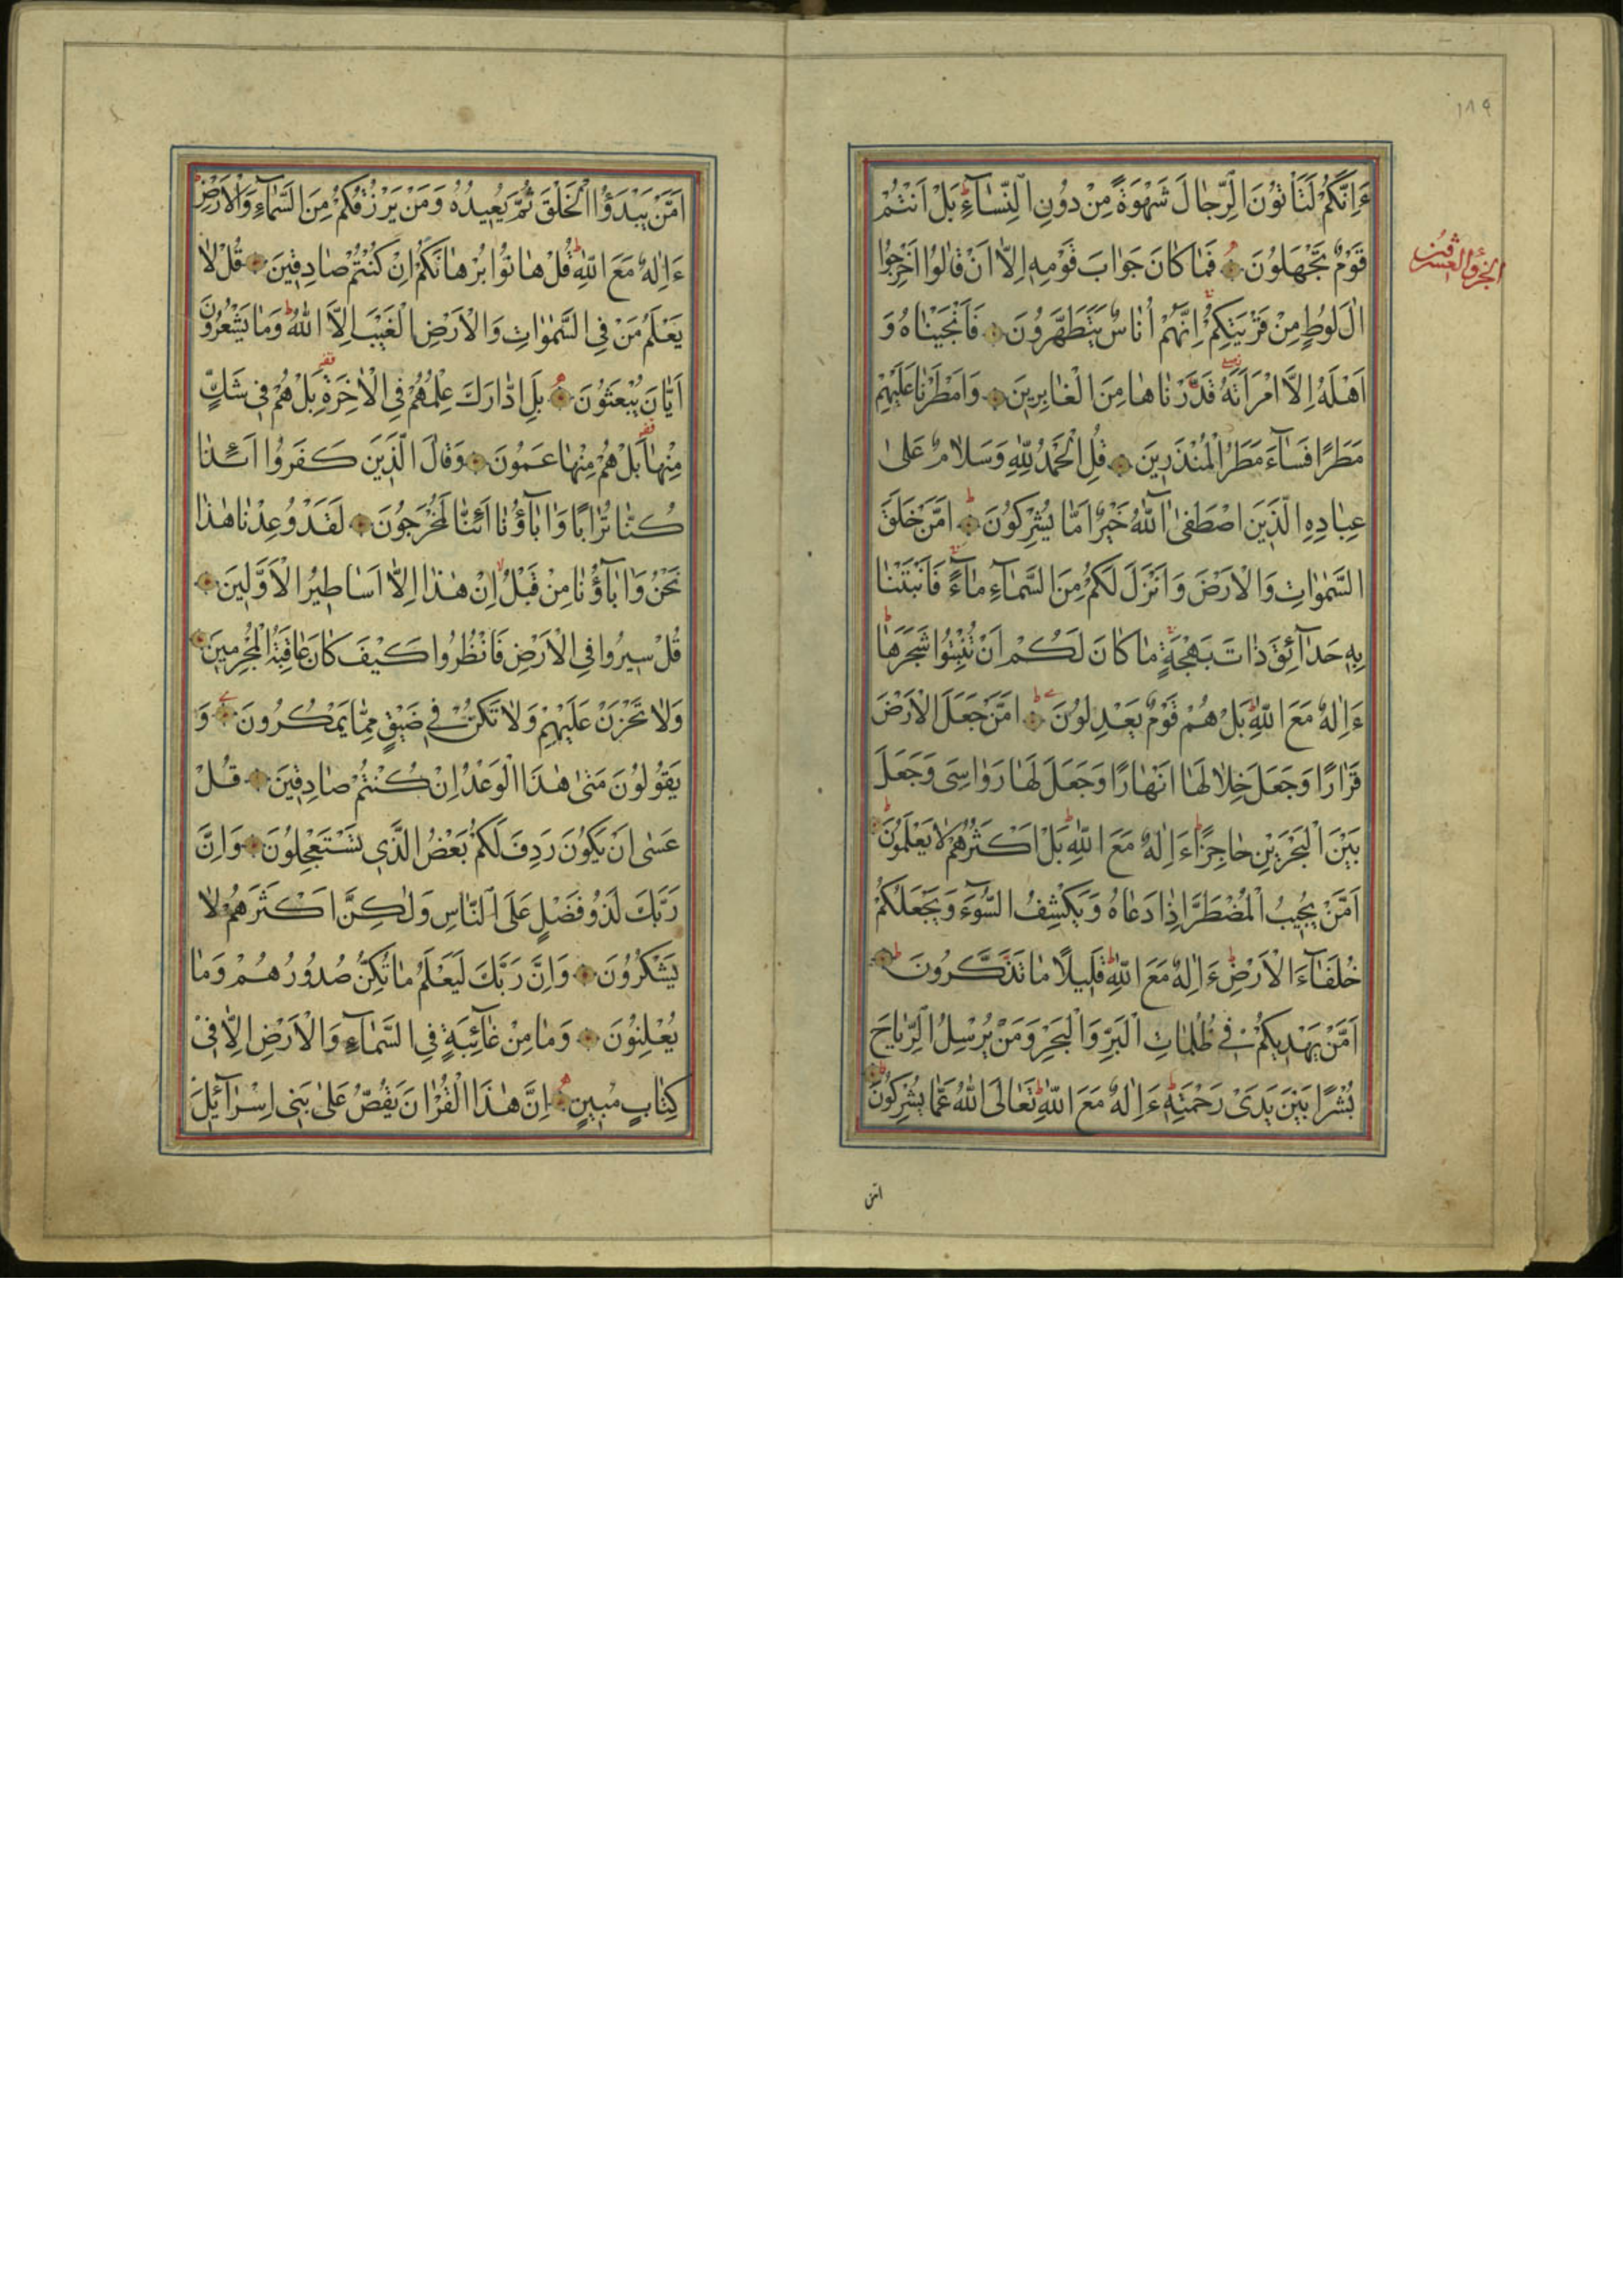 ١٨٩
ءَاِنَّكُمْ لَتَاْتُوْنَ الرِّجَالَ شَهْوَةً مِنْ دُوْنِ النِّسَآءِ بَلْ اَنْتُمْ
قَوْمٌ تَجْهَلُوْنَ فَمَا كَانَ جَوَابَ قَوْمِهٖ اِلَّا اَنْ قَالُوْا اَخْرِجُوْا
اٰلَ لُوْطٍ مِنْ قَرْيَتِكُمْ اِنَّهُمْ اُنَاسٌ يَتَطَهَّرُوْنَ فَاَنْجَيْنَاهُ وَ
اَهْلَهُ اِلَّا امْرَاَتَهُ قَدَّرْنَاهَا مِنَ الْغَابِرِيْنَ وَاَمْطَرْنَا عَلَيْهِمْ
مَطَرًا فَسَآءَ مَطَرُ الْمُنْذَرِيْنَ قُلِ الْحَمْدُ لِلّٰهِ وَسَلَامٌ عَلٰى
عِبَادِهِ الَّذِيْنَ اصْطَفٰى آللّٰهُ خَيْرٌ اَمَّا يُشْرِكُوْنَ اَمَّنْ خَلَقَ
السَّمٰوَاتِ وَالْاَرْضَ وَاَنْزَلَ لَكُمْ مِنَ السَّمَآءِ مَآءً فَاَنْبَتْنَا
بِهٖ حَدَآئِقَ ذَاتَ بَهْجَةٍ مَا كَانَ لَكُمْ اَنْ تُنْبِتُوْا شَجَرَهَا
ءَاِلٰهٌ مَعَ اللّٰهِ بَلْ هُمْ قَوْمٌ يَعْدِلُوْنَ اَمَّنْ جَعَلَ الْاَرْضَ
قَرَارًا وَجَعَلَ خِلَالَهَا اَنْهَارًا وَجَعَلَ لَهَا رَوَاسِىَ وَجَعَلَ
بَيْنَ الْبَحْرَيْنِ حَاجِزًا ءَاِلٰهٌ مَعَ اللّٰهِ بَلْ اَكْثَرُهُمْ لَا يَعْلَمُوْنَ
اَمَّنْ يُجِيْبُ الْمُضْطَرَّ اِذَا دَعَاهُ وَيَكْشِفُ السُّوْٓءَ وَيَجْعَلُكُمْ
خُلَفَآءَ الْاَرْضِ ءَاِلٰهٌ مَعَ اللّٰهِ قَلِيْلًا مَا تَذَكَّرُوْنَ
اَمَّنْ يَهْدِيْكُمْ فِيْ ظُلُمَاتِ الْبَرِّ وَالْبَحْرِ وَمَنْ يُرْسِلُ الرِّيَاحَ
بُشْرًا بَيْنَ يَدَىْ رَحْمَتِهٖ ءَاِلٰهٌ مَعَ اللّٰهِ تَعَالَى اللّٰهُ عَمَّا يُشْرِكُوْنَ
امن
اَمَّنْ يَبْدَؤُا الْخَلْقَ ثُمَّ يُعِيْدُهُ وَمَنْ يَرْزُقُكُمْ مِنَ السَّمَآءِ وَالْاَرْضِ
ءَاِلٰهٌ مَعَ اللّٰهِ قُلْ هَاتُوْا بُرْهَانَكُمْ اِنْ كُنْتُمْ صَادِقِيْنَ قُلْ لَا
يَعْلَمُ مَنْ فِي السَّمٰوَاتِ وَالْاَرْضِ الْغَيْبَ اِلَّا اللّٰهُ وَمَا يَشْعُرُوْنَ
اَيَّانَ يُبْعَثُوْنَ بَلِ ادَّارَكَ عِلْمُهُمْ فِي الْاٰخِرَةِ بَلْ هُمْ فِيْ شَكٍّ
مِنْهَا بَلْ هُمْ مِنْهَا عَمُوْنَ وَقَالَ الَّذِيْنَ كَفَرُوْا اَئِذَا
كُنَّا تُرَابًا وَاٰبَآؤُنَا اَئِنَّا لَمُخْرَجُوْنَ لَقَدْ وُعِدْنَا هٰذَا
نَحْنُ وَاٰبَآؤُنَا مِنْ قَبْلُ اِنْ هٰذَا اِلَّا اَسَاطِيْرُ الْاَوَّلِيْنَ
قُلْ سِيْرُوْا فِي الْاَرْضِ فَانْظُرُوْا كَيْفَ كَانَ عَاقِبَةُ الْمُجْرِمِيْنَ
وَلَا تَحْزَنْ عَلَيْهِمْ وَلَا تَكُنْ فِيْ ضَيْقٍ مِمَّا يَمْكُرُوْنَ وَ
يَقُوْلُوْنَ مَتٰى هٰذَا الْوَعْدُ اِنْ كُنْتُمْ صَادِقِيْنَ قُلْ
عَسٰى اَنْ يَكُوْنَ رَدِفَ لَكُمْ بَعْضُ الَّذِيْ تَسْتَعْجِلُوْنَ وَاِنَّ
رَبَّكَ لَذُوْ فَضْلٍ عَلَى النَّاسِ وَلٰكِنَّ اَكْثَرَهُمْ لَا
يَشْكُرُوْنَ وَاِنَّ رَبَّكَ لَيَعْلَمُ مَا تُكِنُّ صُدُوْرُهُمْ وَمَا
يُعْلِنُوْنَ وَمَا مِنْ غَآئِبَةٍ فِي السَّمَآءِ وَالْاَرْضِ اِلَّا فِيْ
كِتَابٍ مُبِيْنٍ اِنَّ هٰذَا الْقُرْاٰنَ يَقُصُّ عَلٰى بَنِيْ اِسْرَآئِيْلَ